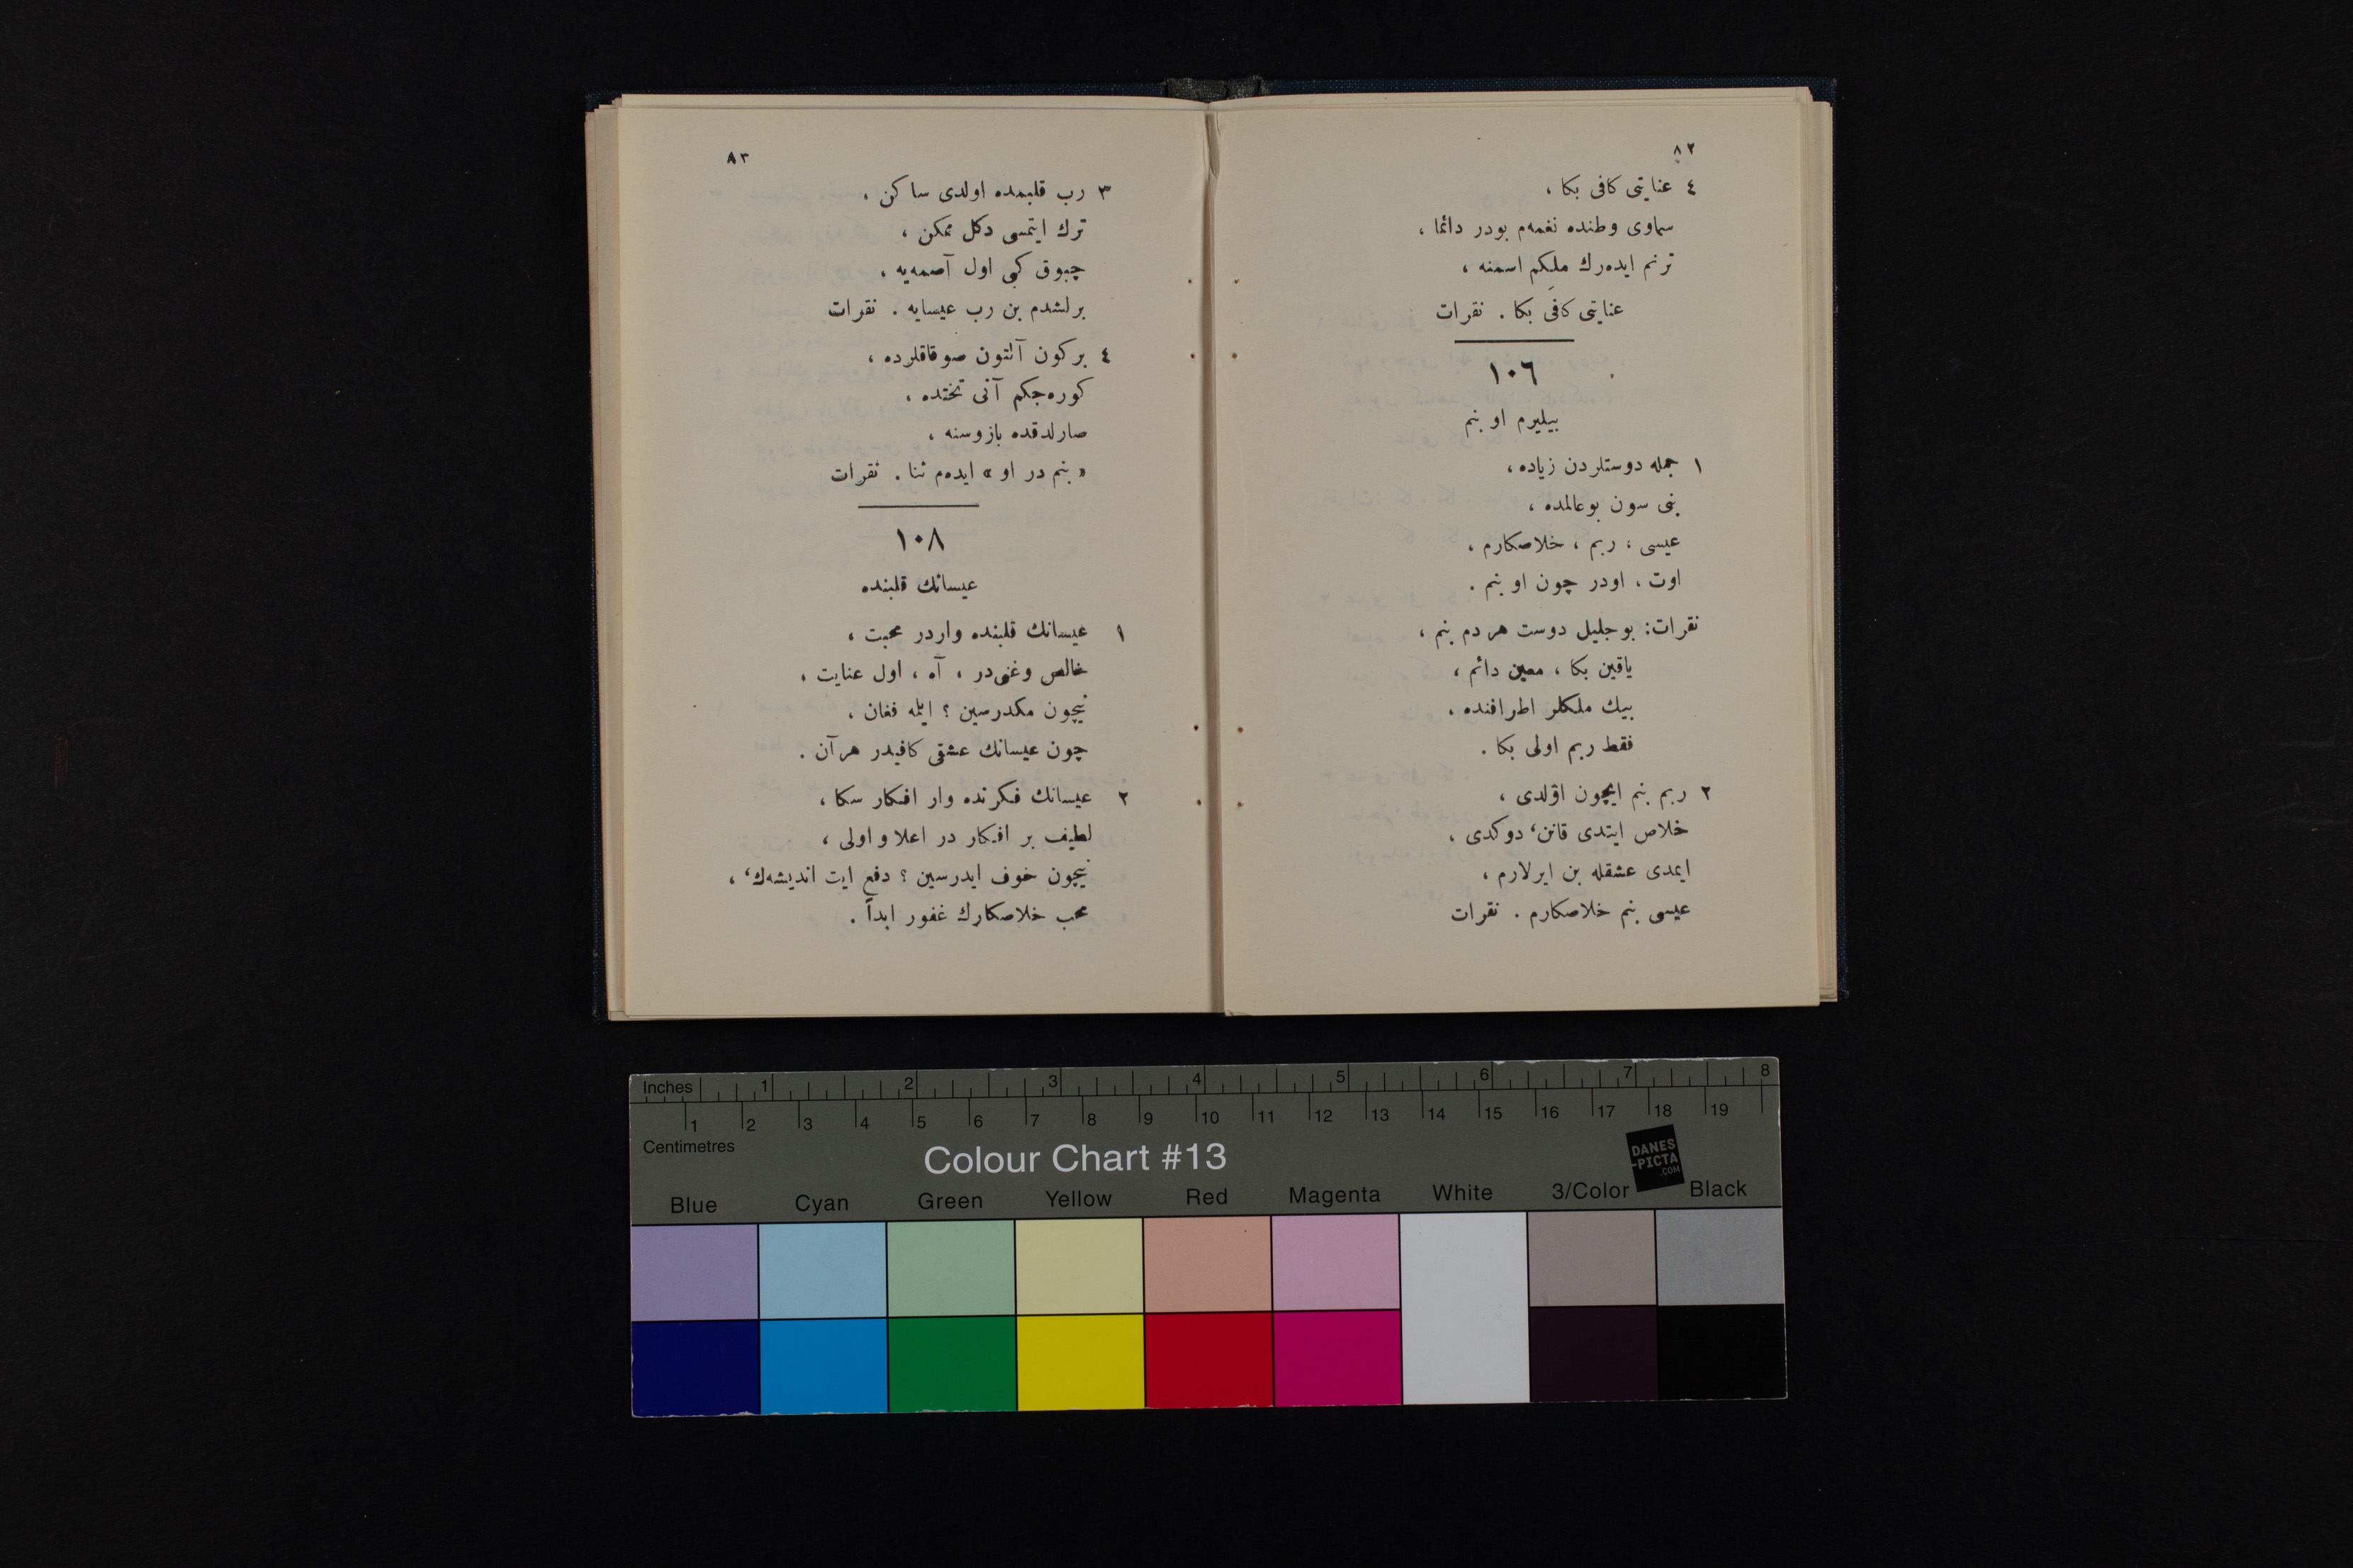 ٨٢
٤ عنايتی كافی بكا ،
سماوی وطنده نغمه‌م بودر دائما ،
ترنم ايده‌رك ملكم اسمنه ،
عنايتی كافی بكا . نقرات
١٠٦
بيليرم او بنم
١ جمله دوستلردن زياده،
بنی سون بوعالمده ،
عيسی ، ربم ، خلاصكارم ،
اوت ، اودر چون او بنم .
نقرات: بوجليل دوست هردم بنم ،
ياقين بكا ، معين دائم ،
بيك ملكلر اطرافنده ،
فقط ربم اولی بكا .
٢ ربم بنم ايچون اولدی ،
خلاص ايتدی قانن‘ دوكدی ،
ايمدی عشقله بن ايرلارم ،
عيسی بنم خلاصكارم . نقرات
٨٣
٣ رب قلبمده اولدی ساكن ،
ترك ايتمسی دكل ممكن ،
چبوق كبی اول آصمه‌يه ،
برلشدم بن رب عيسايه . نقرات
٤ بركون آلتون صوقاقلرده ،
كوره‌جكم آنی تختده ،
صارلدقده بازوسنه ،
« بنم در او » ايده‌م ثنا . نقرات
١٠٨
عيسانك قلبنده
١ عيسانك قلبنده واردر محبت ،
خالص وغنی‌در ، آه ، اول عنايت ،
نيچون مكدرسين ؟ ايلمه فغان ،
چون عيسانك عشقی كافيدر هرآن .
٢ عيسانك فكرنده وار افكار سكا ،
لطيف بر افكار در اعلا و اولی ،
نيچون خوف ايدرسين ؟ دفع ايت انديشه‌ك‘ ،
محب خلاصكارك غفور ابداً .
Inches 1 2 3 4 5 6 7 8
1 2 3 4 5 6 7 8 9 10 11 12 13 14 15 16 17 18 19
Centimetres
Colour Chart #13
DANES
-PICTA
.COM
Blue Cyan Green Yellow Red Magenta White 3/Color Black